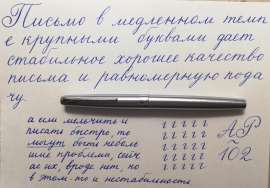 Письмо в медленном темп
е крупными буквами дает
стабильное хорошее качество
письма и равномерную пода
чу.
а или мельчить и
писать быстро, то
могут быть неболь
шие проблемы, сейч
ас их, вроде нет, но
в этом-то и нестабильность
г г г г г
г г г г г
г г г г г
г г г г г
г г г г г
АР
102